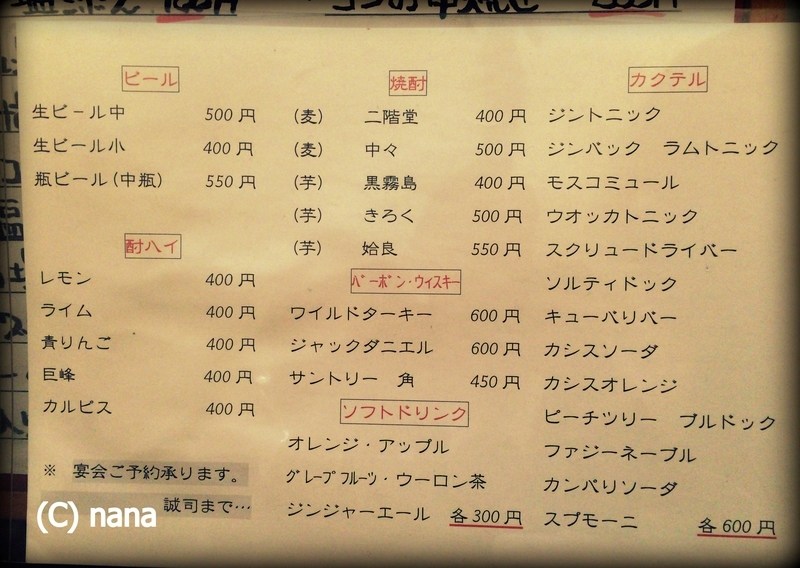 ビール
生ビール中 500円
生ビール小 400円
瓶ビール(中瓶) 550円
酎ハイ
レモン 400円
ライム 400円
青りんご 400円
巨峰 400円
カルピス 400円
※ 宴会ご予約承ります。
誠司まで…
焼酎
(麦) 二階堂 400円
(麦) 中々 500円
(芋) 黒霧島 400円
(芋) きろく 500円
(芋) 姶良 550円
バーボン・ウィスキー
ワイルドターキー 600円
ジャックダニエル 600円
サントリー 角 450円
ソフトドリンク
オレンジ・アップル
グレープフルーツ・ウーロン茶
ジンジャーエール 各300円
カクテル
ジントニック
ジンバック ラムトニック
モスコミュール
ウオッカトニック
スクリュードライバー
ソルティドック
キューバリバー
カシスソーダ
カシスオレンジ
ピーチツリー ブルドック
ファジーネーブル
カンパリソーダ
スプモーニ 各600円
(C) nana